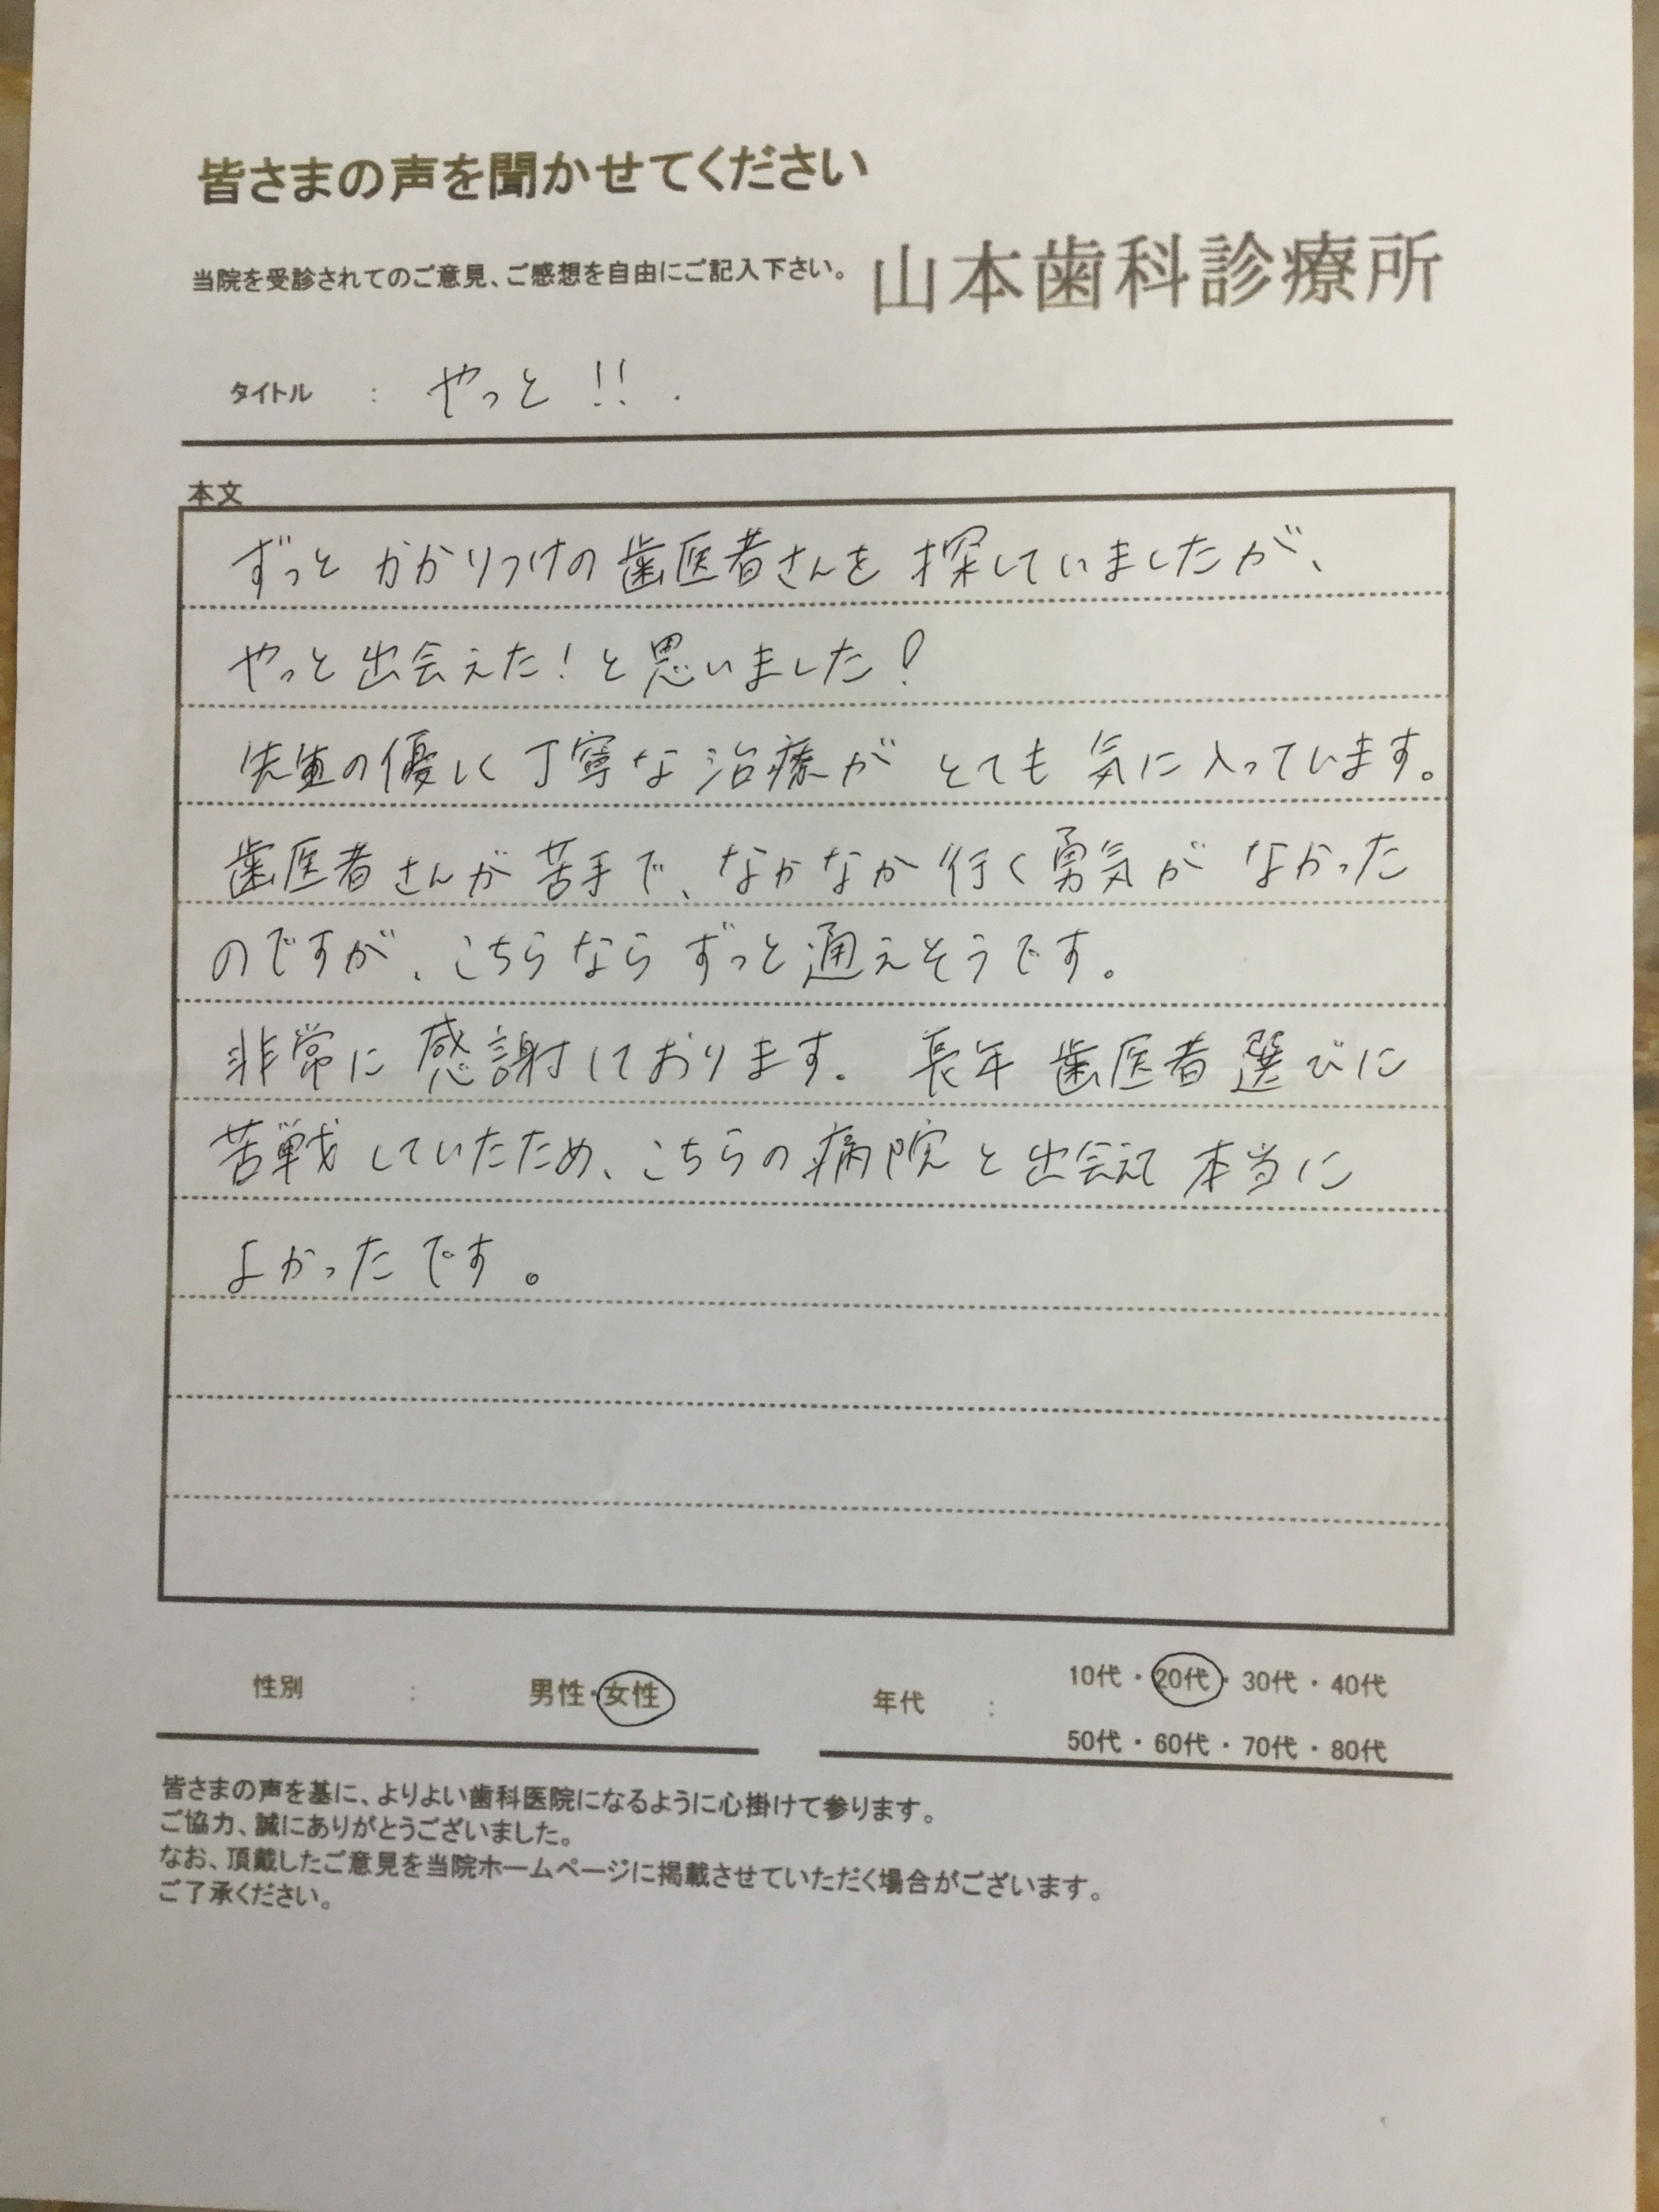 皆さまの声を聞かせてください
当院を受診されてのご意見、ご感想を自由にご記入下さい。 山本歯科診療所
タイトル : やっと!!.
本文
ずっとかかりつけの歯医者さんを探していましたが、
やっと出会えた!と思いました!
先生の優しく丁寧な治療がとても気に入っています。
歯医者さんが苦手で、なかなか行く勇気がなかった
のですが、こちらならずっと通えそうです。
非常に感謝しております。長年歯医者選びに
苦戦していたため、こちらの病院と出会えて本当に
よかったです。
性別 : 男性・女性
年代 : 10代・20代・30代・40代
50代・60代・70代・80代
皆さまの声を基に、よりよい歯科医院になるように心掛けて参ります。
ご協力、誠にありがとうございました。
なお、頂戴したご意見を当院ホームページに掲載させていただく場合がございます。
ご了承ください。